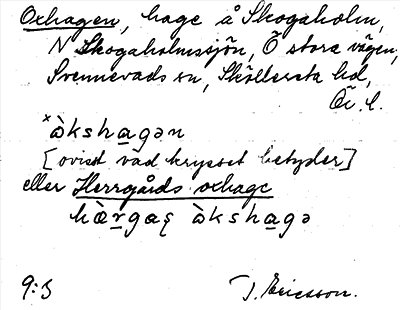 Oxhagen, hage å Skogaholm,
N Skogaholmssjön, Ö stora vägen,
Svennevads sn, Sköllersta hd,
Ör. l.
×ὰkshagən
[ovisst vad krysset betyder]
eller Herrgårds oxhage
hὰrgaʂ ὰkshagə
9:3 J. Ericsson.